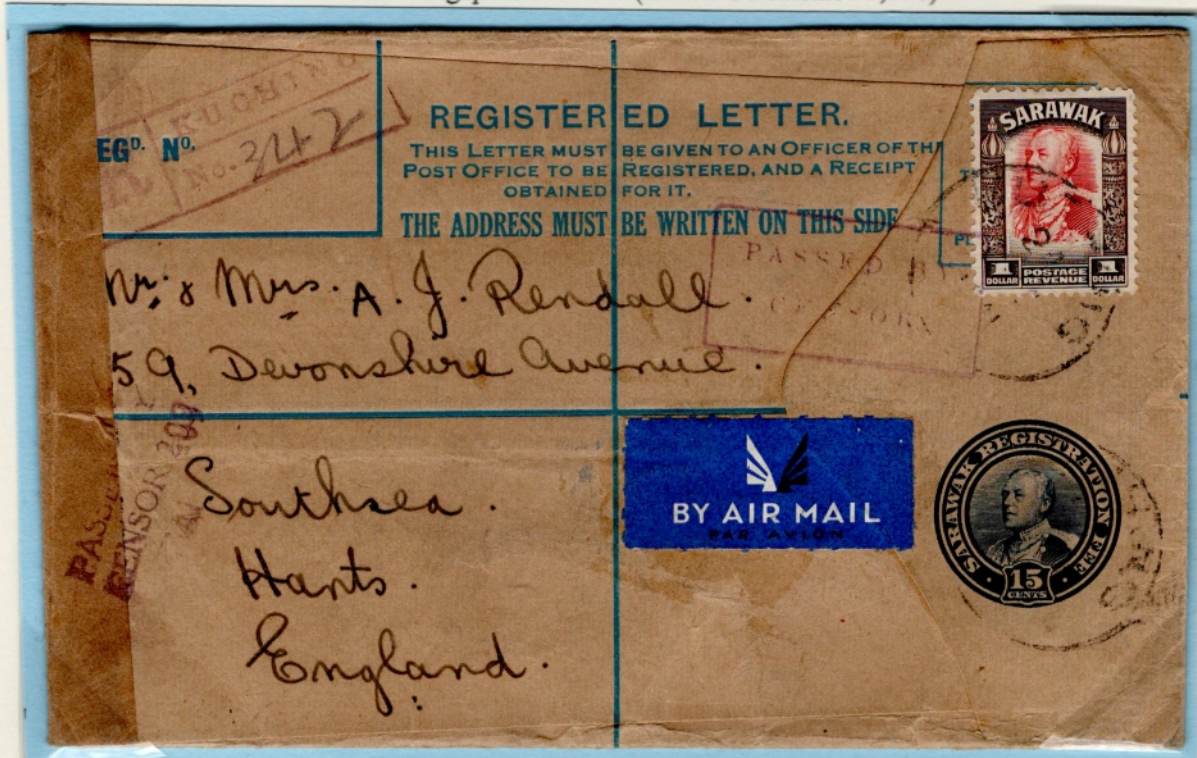 KUCHING
No. 342
EGD. No.
REGISTERED LETTER.
THIS LETTER MUST BE GIVEN TO AN OFFICER OF TH
POST OFFICE TO BE REGISTERED, AND A RECEIPT
OBTAINED FOR IT.
THE ADDRESS MUST BE WRITTEN ON THIS SIDE
SARAWAK
1 DOLLAR POSTAGE REVENUE 1 DOLLAR
PASSED B
Mr. & Mrs. A. J. Rendall.
59, Devonshire Avenue.
Southsea.
Hants.
England.
BY AIR MAIL
PAR AVION
SARAWAK REGISTRATION FEE
15
CENTS